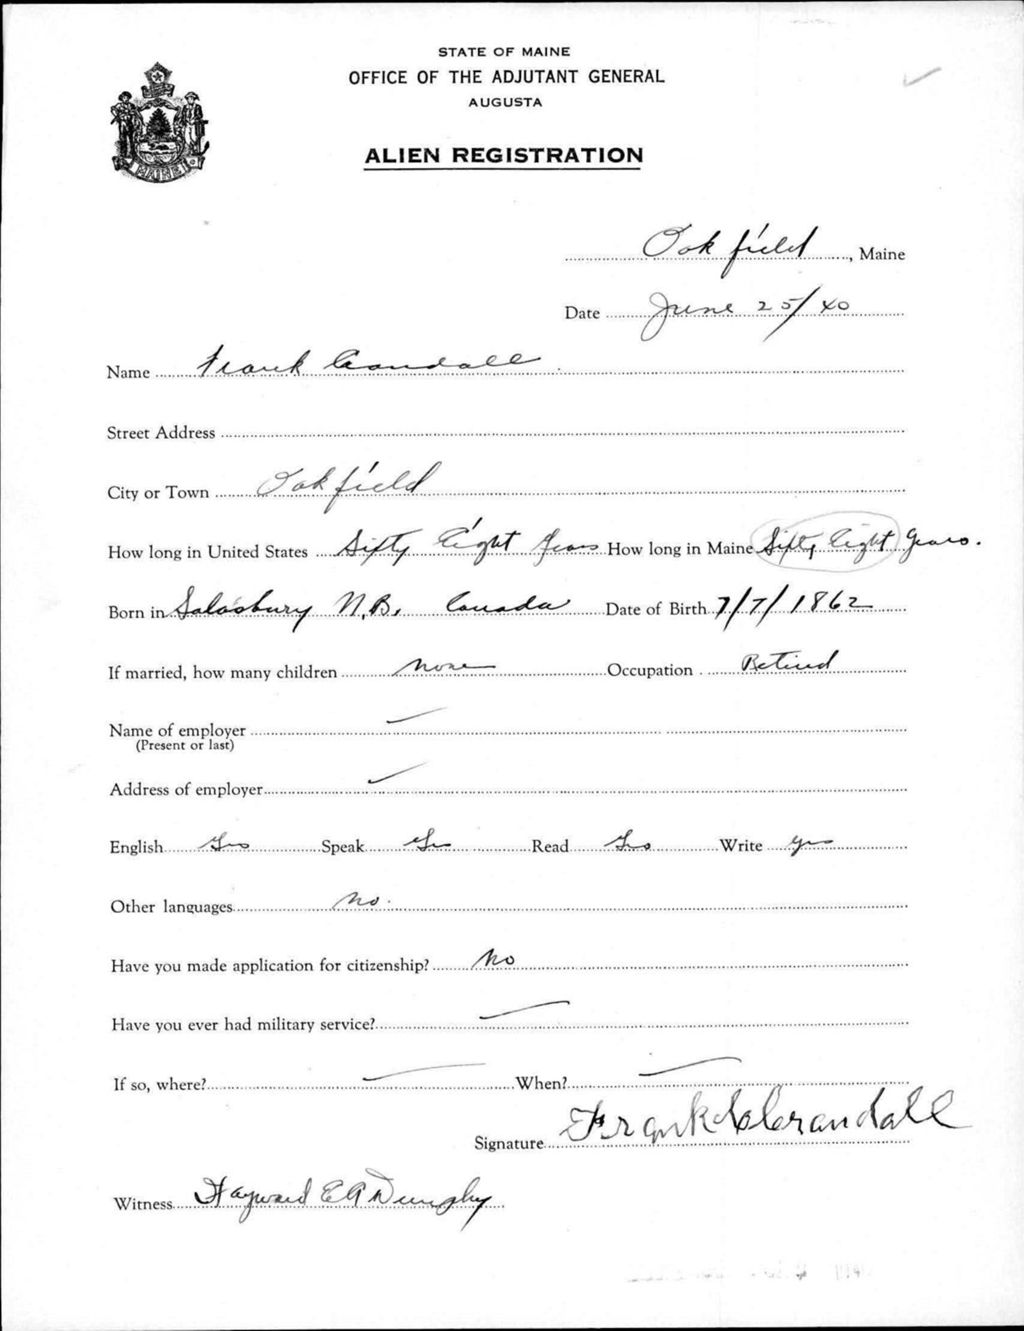 STATE OF MAINE
OFFICE OF THE ADJUTANT GENERAL
AUGUSTA
ALIEN REGISTRATION
Oakfield, Maine
Date June 25/40
Name Frank Crandall
Street Address
City or Town Oakfield
How long in United States Sixty Eight Years How long in Maine Sixty Eight Years.
Born in Salosbury N.B. Canada Date of Birth 7/7/1862
If married, how many children None Occupation Retired
Name of employer
(Present or last)
Address of employer
English Yes Speak Yes Read Yes Write Yes
Other languages No.
Have you made application for citizenship? No
Have you ever had military service?
If so, where? When?
Signature Frank Crandall
Witness Hayward E
MAINE